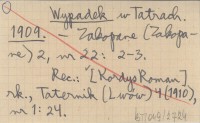 Wypadek w Tatrach.
1909. – Zakopane (Zakopa-
ne) 2, nr 22: 2-3.
Rec.: [Kordys Roman]
rk. Taternik (Lwów) 4 (1910),
nr 1: 24.